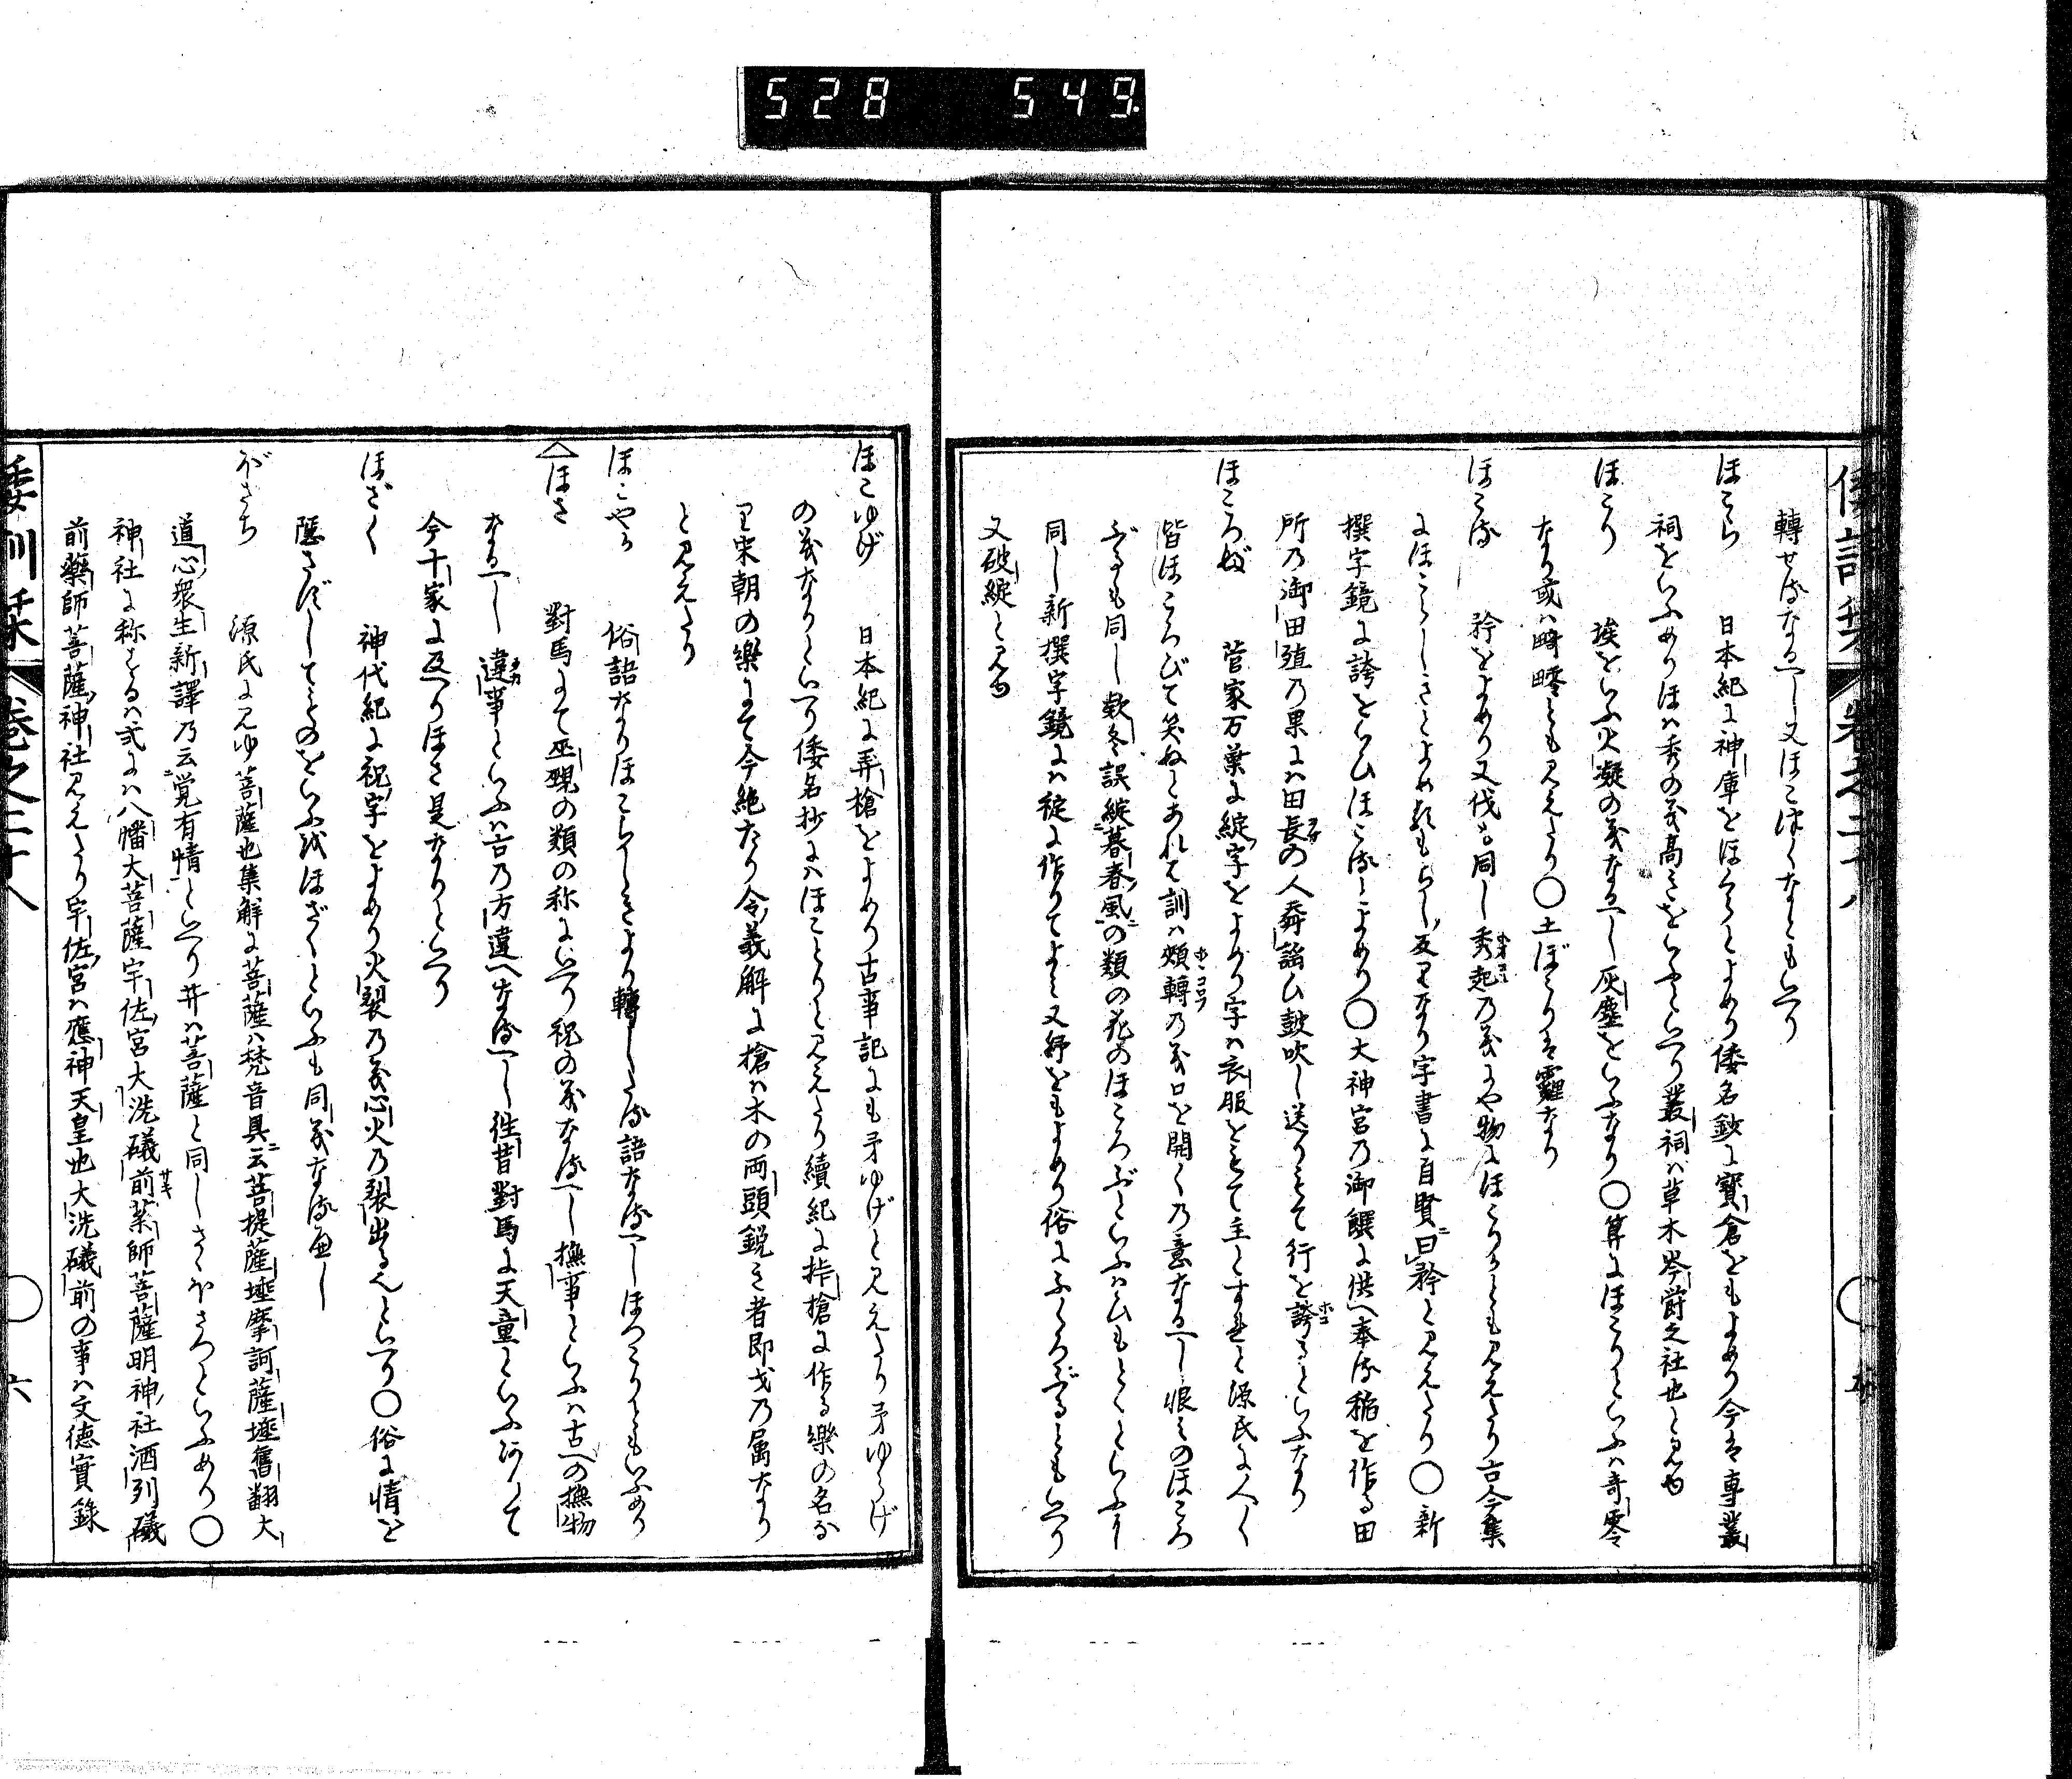 528 549
倭訓栞 卷之二十八 ○ ホ
轉せるなるへし又ほこほくなともいへり
ほこら 日本紀に神庫をほくらとよめり倭名鈔に寶倉をもよめり今は專叢
祠をいふめりほは秀の義高きをいふといへり叢祠は草木岑蔚之社也と見ゆ
ほこり 埃をいふ火凝の義なるへし灰塵をいふなり○算にほこりといふは奇零
なり或は畸零とも見えたり○土ぼこりは霾なり
ほこる 矜をよめり又伐も同し秀起の義にや物にほこりかとも見えたり古今集
にほこらしきとよめるもらし反りなり字書に自賢曰矜と見えたり○新
撰字鏡に誇をらひほこるとよめり○大神宮の御饌に供へ奉る稻を作る田
所の御田殖の果には田長の人舞謡ひ鼓吹し送りもて行を誇るといふなり
ほころぶ 菅家万葉に綻字をよめり字は衣服をもて主とすれと源氏に人〱
皆ほころびて笑ぬとあれは訓は頬轉の義口を開くの意なるへし恨みのほころ
ぶるも同し欵冬誤綻暮春風の類の花のほころぶといふはひもとくといふに
同し新撰字鏡には䘺に作りてよみ又紓をもよめり俗にふくろぶるともいへり
又破綻と見ゆ
ほこゆげ 日本紀に弄槍をよめり古事記にも矛ゆげと見えたり矛ゆらげ
の義なりといへり倭名抄にはほことりと見えたり續紀に桙槍に作る樂の名な
り宋朝の樂にて今絶たり令義解に槍は木の両頭鋭き者即戈乃属なり
と見えたり
ほこやか 俗語なりほこらしきより轉したる語なるへしほこりかともいふめり
△ほさ 對馬にて巫覡の類の称にいへり祝の義なるへし撫事といふは古への撫物
なるへし違事といふは古乃方違へなるへし徃昔對馬に天童といふ何〱て
今十家に及へりほさ是なりといへり
ほざく 神代紀に祝字をよめり火裂乃義心火乃裂出る也といへり○俗に情を
隠さずしてものをいふ我ほざくといふも同義なる也し
ぼさち 源氏に見ゆ菩薩也集解に菩薩は梵音具云菩提薩埵摩訶薩埵舊翻大
道心衆生新譯乃云覚有情といへり丼は菩薩と同しさくぼさつといふめり○
神社に称するは式には八幡大菩薩宇佐宮大洗礒前薬師菩薩明神社酒列礒
前藥師菩薩神社見えたり宇佐宮は應神天皇也大洗礒前の事は文徳實錄
倭訓栞 卷之二十八 ○ 六